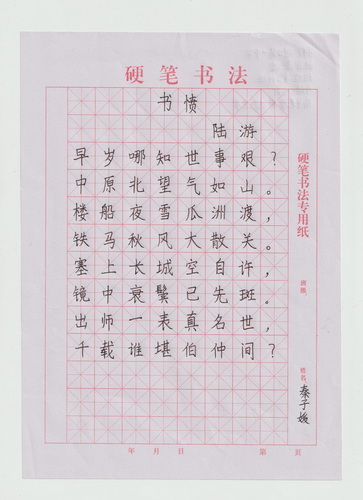 硬笔书法
书愤
陆游
早岁哪知世事艰?
中原北望气如山。
楼船夜雪瓜洲渡,
铁马秋风大散关。
塞上长城空自许,
镜中衰鬓已先斑。
出师一表真名世,
千载谁堪伯仲间?
硬笔书法专用纸
班级:
姓名:秦子媛
年 月 日 第 页